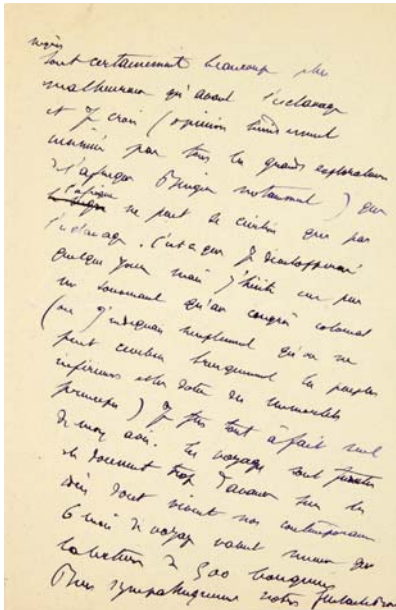 nègres
sont certainement beaucoup plus
malheureux qu'avant l'esclavage
et je crois (opinion timidement
insinuée par tous les grands explorateurs
de l'afrique Binger notamment) que
l'afrique ne peut se civiliser que par
l'esclavage. C'est ce que je développerai
quelque jour mais j'hésite car par
un souvenant qu'au congrès colonial
(où j'indiquais simplement qu'on ne
peut civiliser brusquement les peuples
inférieurs et les doter des immortels
principes) je fus tout à fait seul
de mon avis. Les voyages sont funestes
et donnent trop d'avance sur les
idées dont vivent nos contemporains
6 mois de voyage valent mieux que
la lecture de 500 bouquins
Bien sympathiquement votre